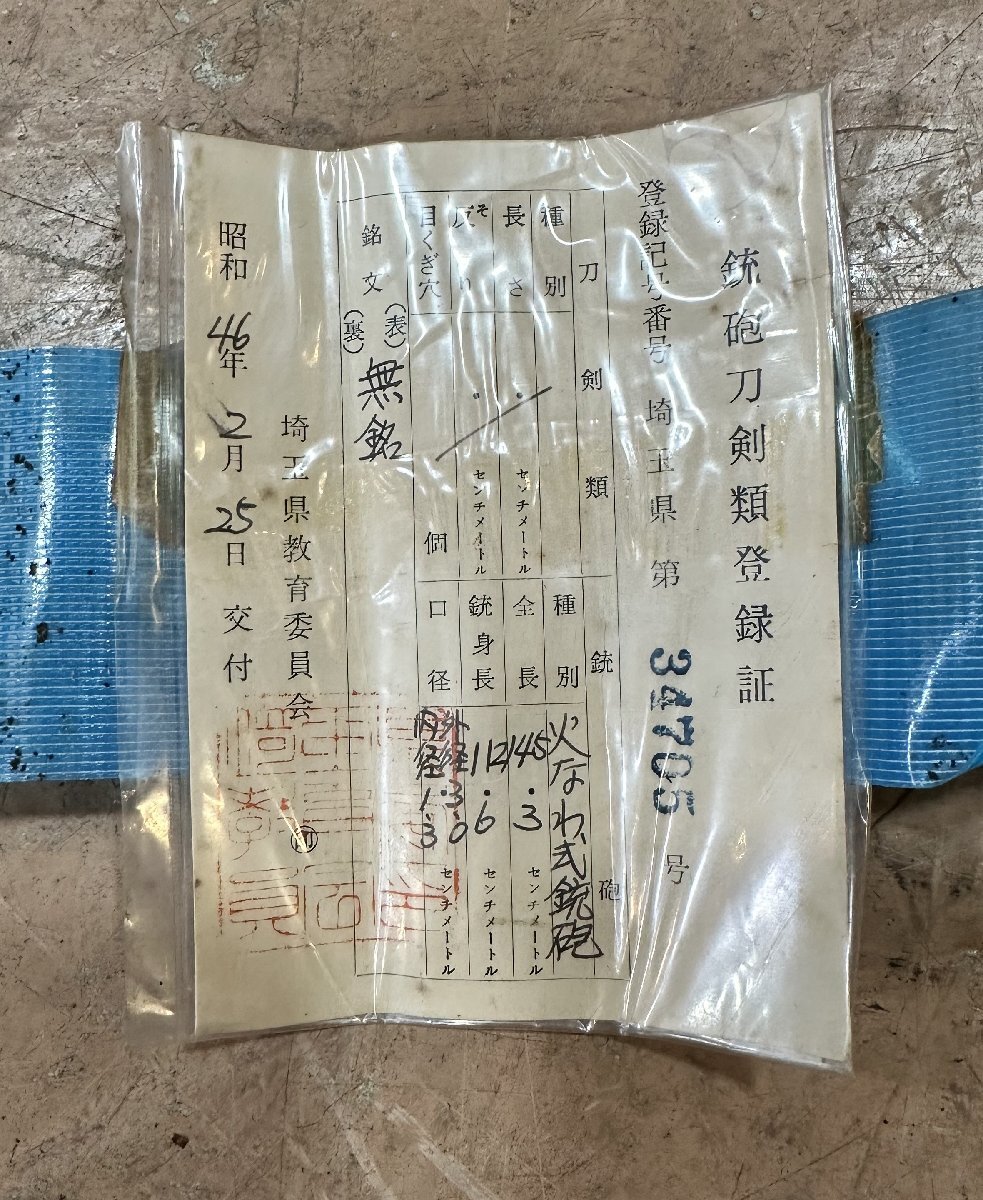 銃砲刀剣類登録証
登録記号番号 埼玉県 第 34705 号
刀剣類
種別
長さ . センチメートル
反り そ . センチメートル
目くぎ穴 個
銃砲
種別 火なわ式銃砲
全長 145.3 センチメートル
銃身長 112.6 センチメートル
口径 外径 3.0 内径 1.3 センチメートル
銘文 (表) 無銘
(裏)
埼玉県教育委員会 印
昭和 46年 2月 25日 交付